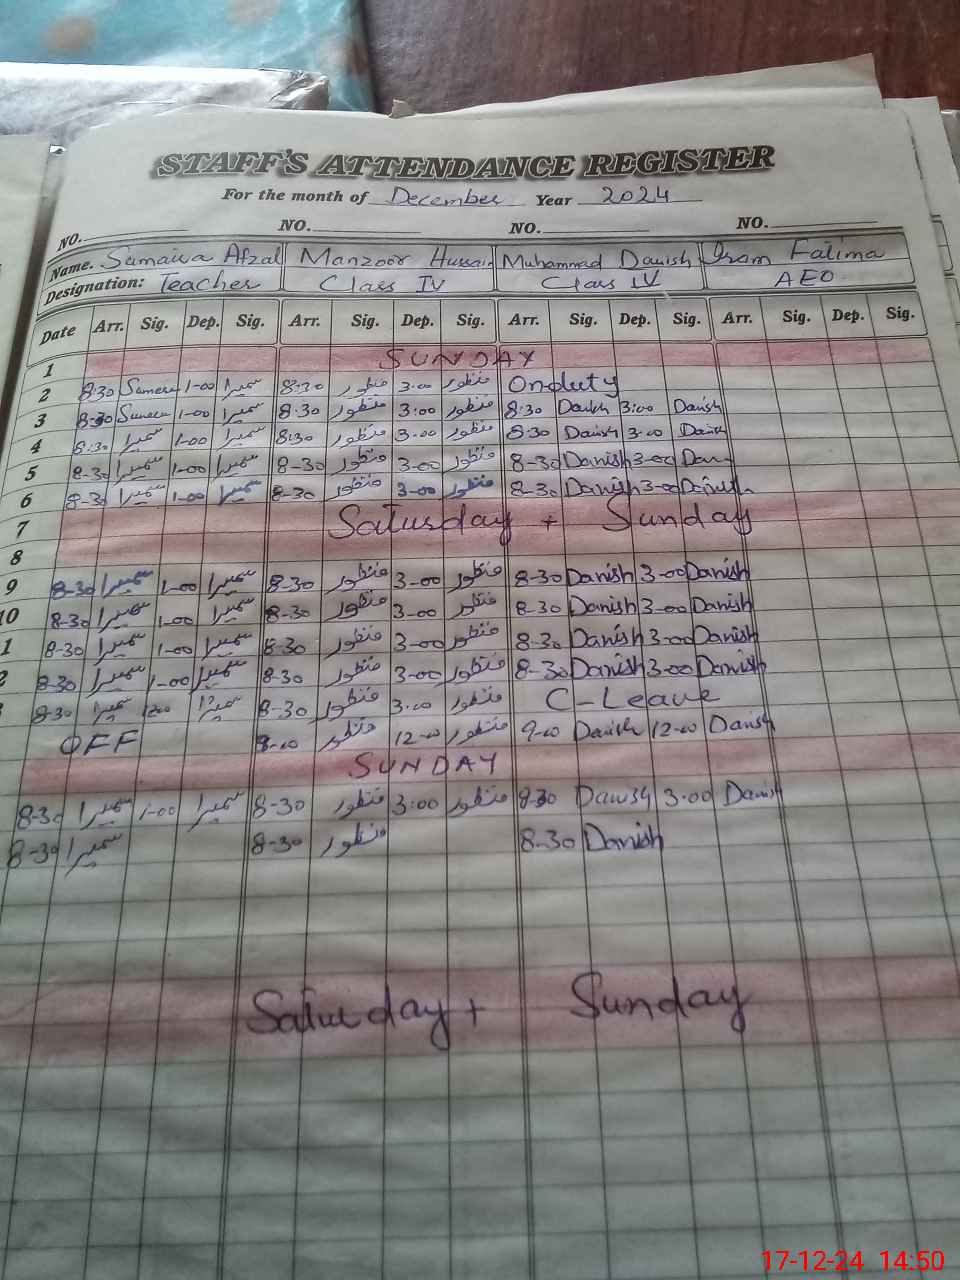 STAFF'S ATTENDANCE REGISTER
For the month of December Year 2024
NO. NO. NO. NO.
Name. Sumaira Afzal Manzoor Hussain Muhammad Danish Iram Fatima
Designation: Teacher Class IV Class IV AEO
Date Arr. Sig. Dep. Sig. Arr. Sig. Dep. Sig. Arr. Sig. Dep. Sig. Arr. Sig. Dep. Sig.
1 SUNDAY
2 8:30 1-00 سمیرا 8:30 منظور 3:00 منظور On duty
3 8-30 1-00 سمیرا 8:30 منظور 3:00 منظور 8:30 Danish 3:00 Danish
4 8:30 سمیرا 1-00 سمیرا 8:30 منظور 3-00 منظور 8:30 Danish 3-00 Danish
5 8-30 سمیرا 1-00 سمیرا 8-30 منظور 3-00 منظور 8-30 Danish 3-00 Dan
6 8-30 سمیرا 1-00 سمیرا 8-30 منظور 3-00 منظور 8-30 Danish 3-00 Danish
7 Saturday + Sunday
8
9 8-30 سمیرا 1-00 سمیرا 8-30 منظور 3-00 منظور 8-30 Danish 3-00 Danish
10 8-30 سمیرا 1-00 سمیرا 8-30 منظور 3-00 منظور 8-30 Danish 3-00 Danish
1 8-30 سمیرا 1-00 سمیرا 8-30 منظور 3-00 منظور 8-30 Danish 3-00 Danish
2 8-30 سمیرا 1-00 سمیرا 8-30 منظور 3-00 منظور 8-30 Danish 3-00 Danish
8-30 سمیرا سمیرا 8-30 منظور 3:00 منظور C-Leave
OFF منظور 12-00 منظور 9-00 Danish 12-00 Danish
SUNDAY
8-30 سمیرا 1-00 سمیرا 8-30 منظور 3:00 منظور 8-30 Danish 3:00 Danish
8-30 سمیرا 8-30 منظور 8-30 Danish
Saturday + Sunday
17-12-24 14:50